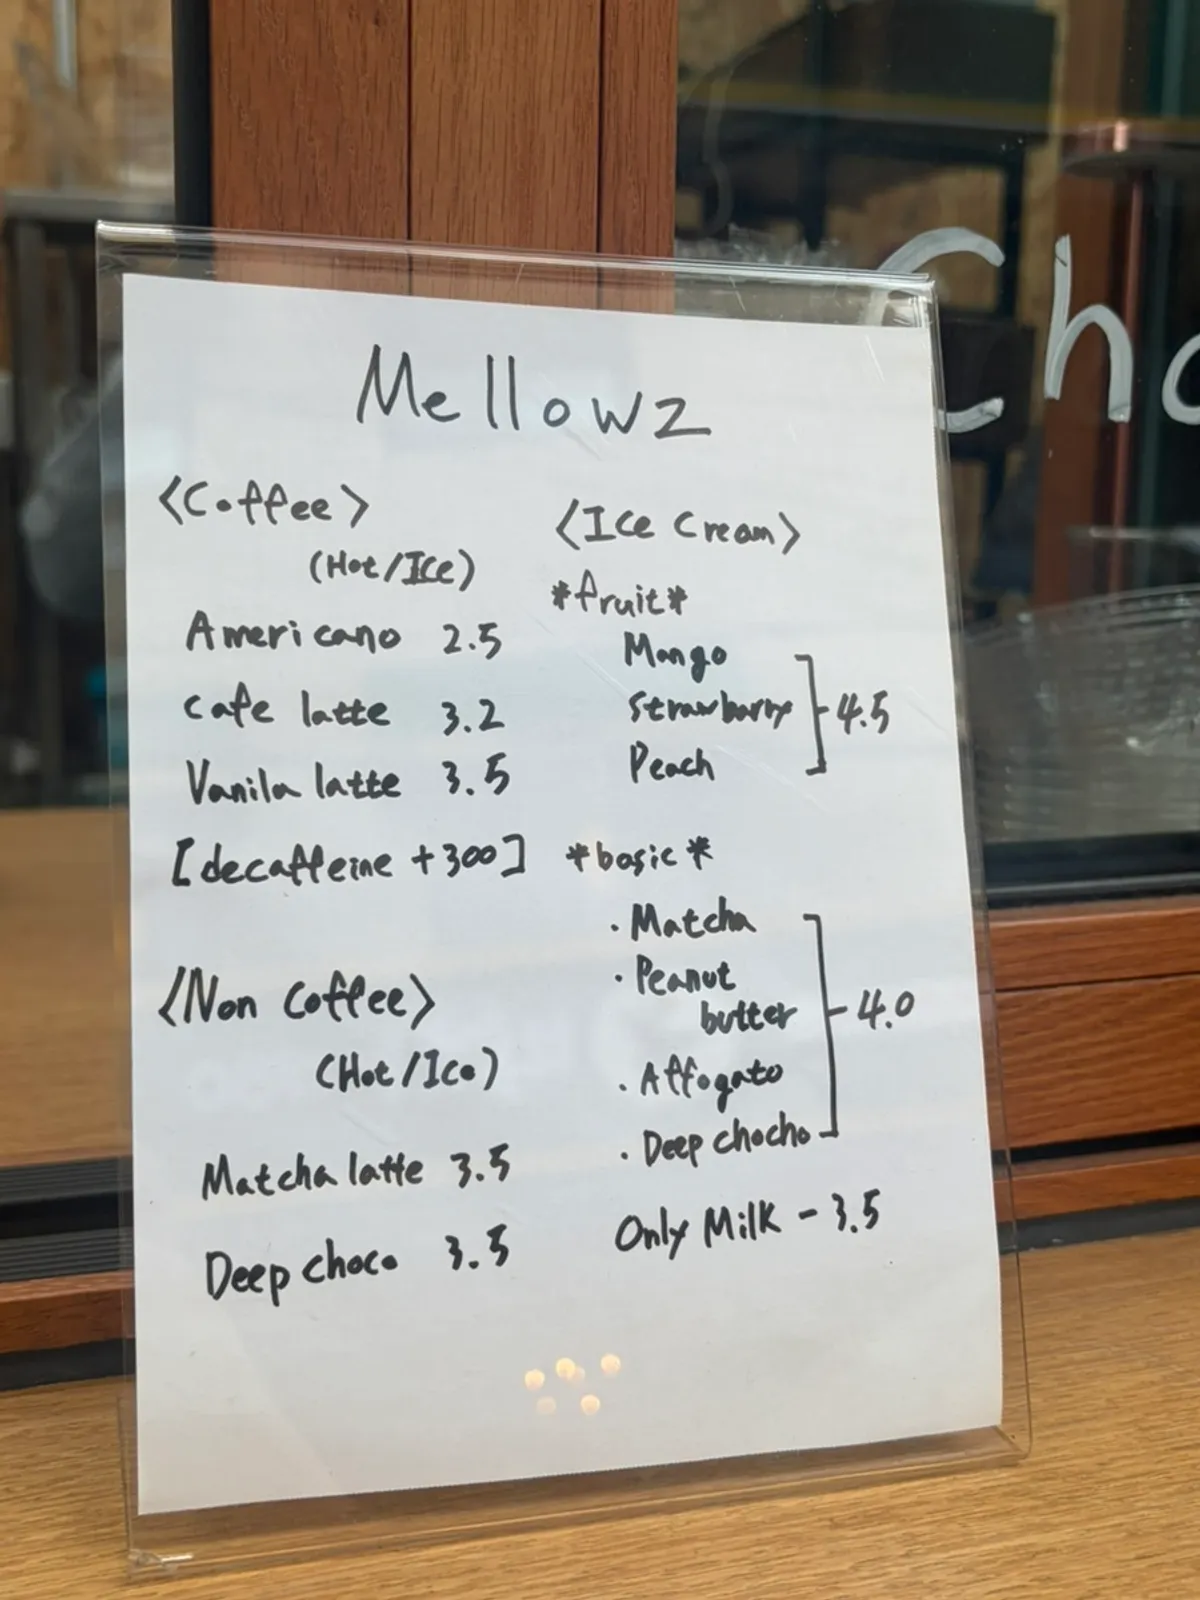 Mellowz
<Coffee>
(Hot/ICe)
Americano 2.5
cafe latte 3.2
Vanila latte 3.5
[decaffeine +300]
<Non Coffee>
(Hot/Ice)
Matcha latte 3.5
Deep choco 3.5
<ICe Cream>
*fruit*
Mango
Strawbarry
Peach
4.5
*basic*
· Matcha
· Peanut
butter
· Affogato
· Deep chocho
4.0
Only Milk - 3.5